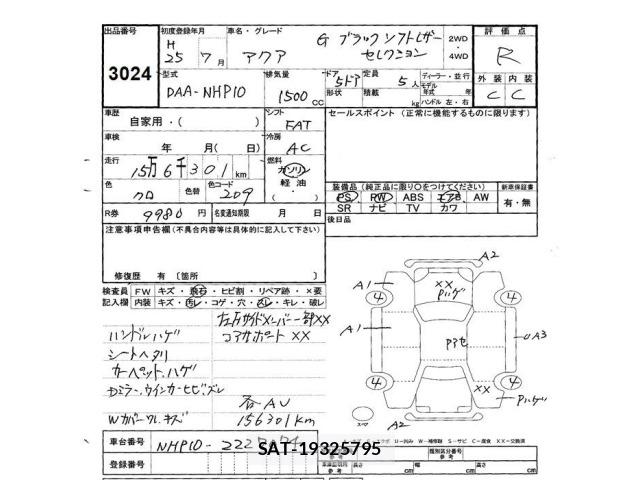 出品番号
3024
初度登録年月
H 25年 7月
車名・グレード
アクア
G ブラックソフトレザー
セレクション
2WD
・
4WD
評価点
R
外装 内装
C C
型式
DAA-NHP10
排気量
1500cc
ドア
5ドア
形状
定員
5人
積載
kg
ディーラー・並行
モデル
年式 年
ハンドル 左・右
車歴
自家用・( )
シフト
FAT
車検
年 月( 日)
冷房
AC
走行
15万6千301km
燃料
ガソリン
軽油
( )
色
クロ
色替
色コード
209
R券 9980円
名変通知期限 月 日
セールスポイント (正常に機能するものに限ります)
装備品 (純正品に限り○をつけてください)
新車保証書
PS RW ABS エアB AW
SR ナビ TV カワ
有・無
後日品
注意事項申告欄 (不具合内容等は具体的に記入して下さい)
修復歴 有〔箇所 〕
検査員
記入欄
FW キズ・飛石・ヒビ割・リペア跡・×要
内装 キズ・汚レ・コゲ・穴・スレ・キレ・破レ
ハンドルハゲ
シートヘタリ
カーペットハゲ
ドミラー、ウインカーヒビ、ズレ
Wカバーワレ キズ
コアサポートXX
各AU
156301km
A2
A1
4
4
XX
A1
Pアセ
UA3
4
4
XX
スペア
A2
車台番号
NHP10-
SAT-19325795
登録番号